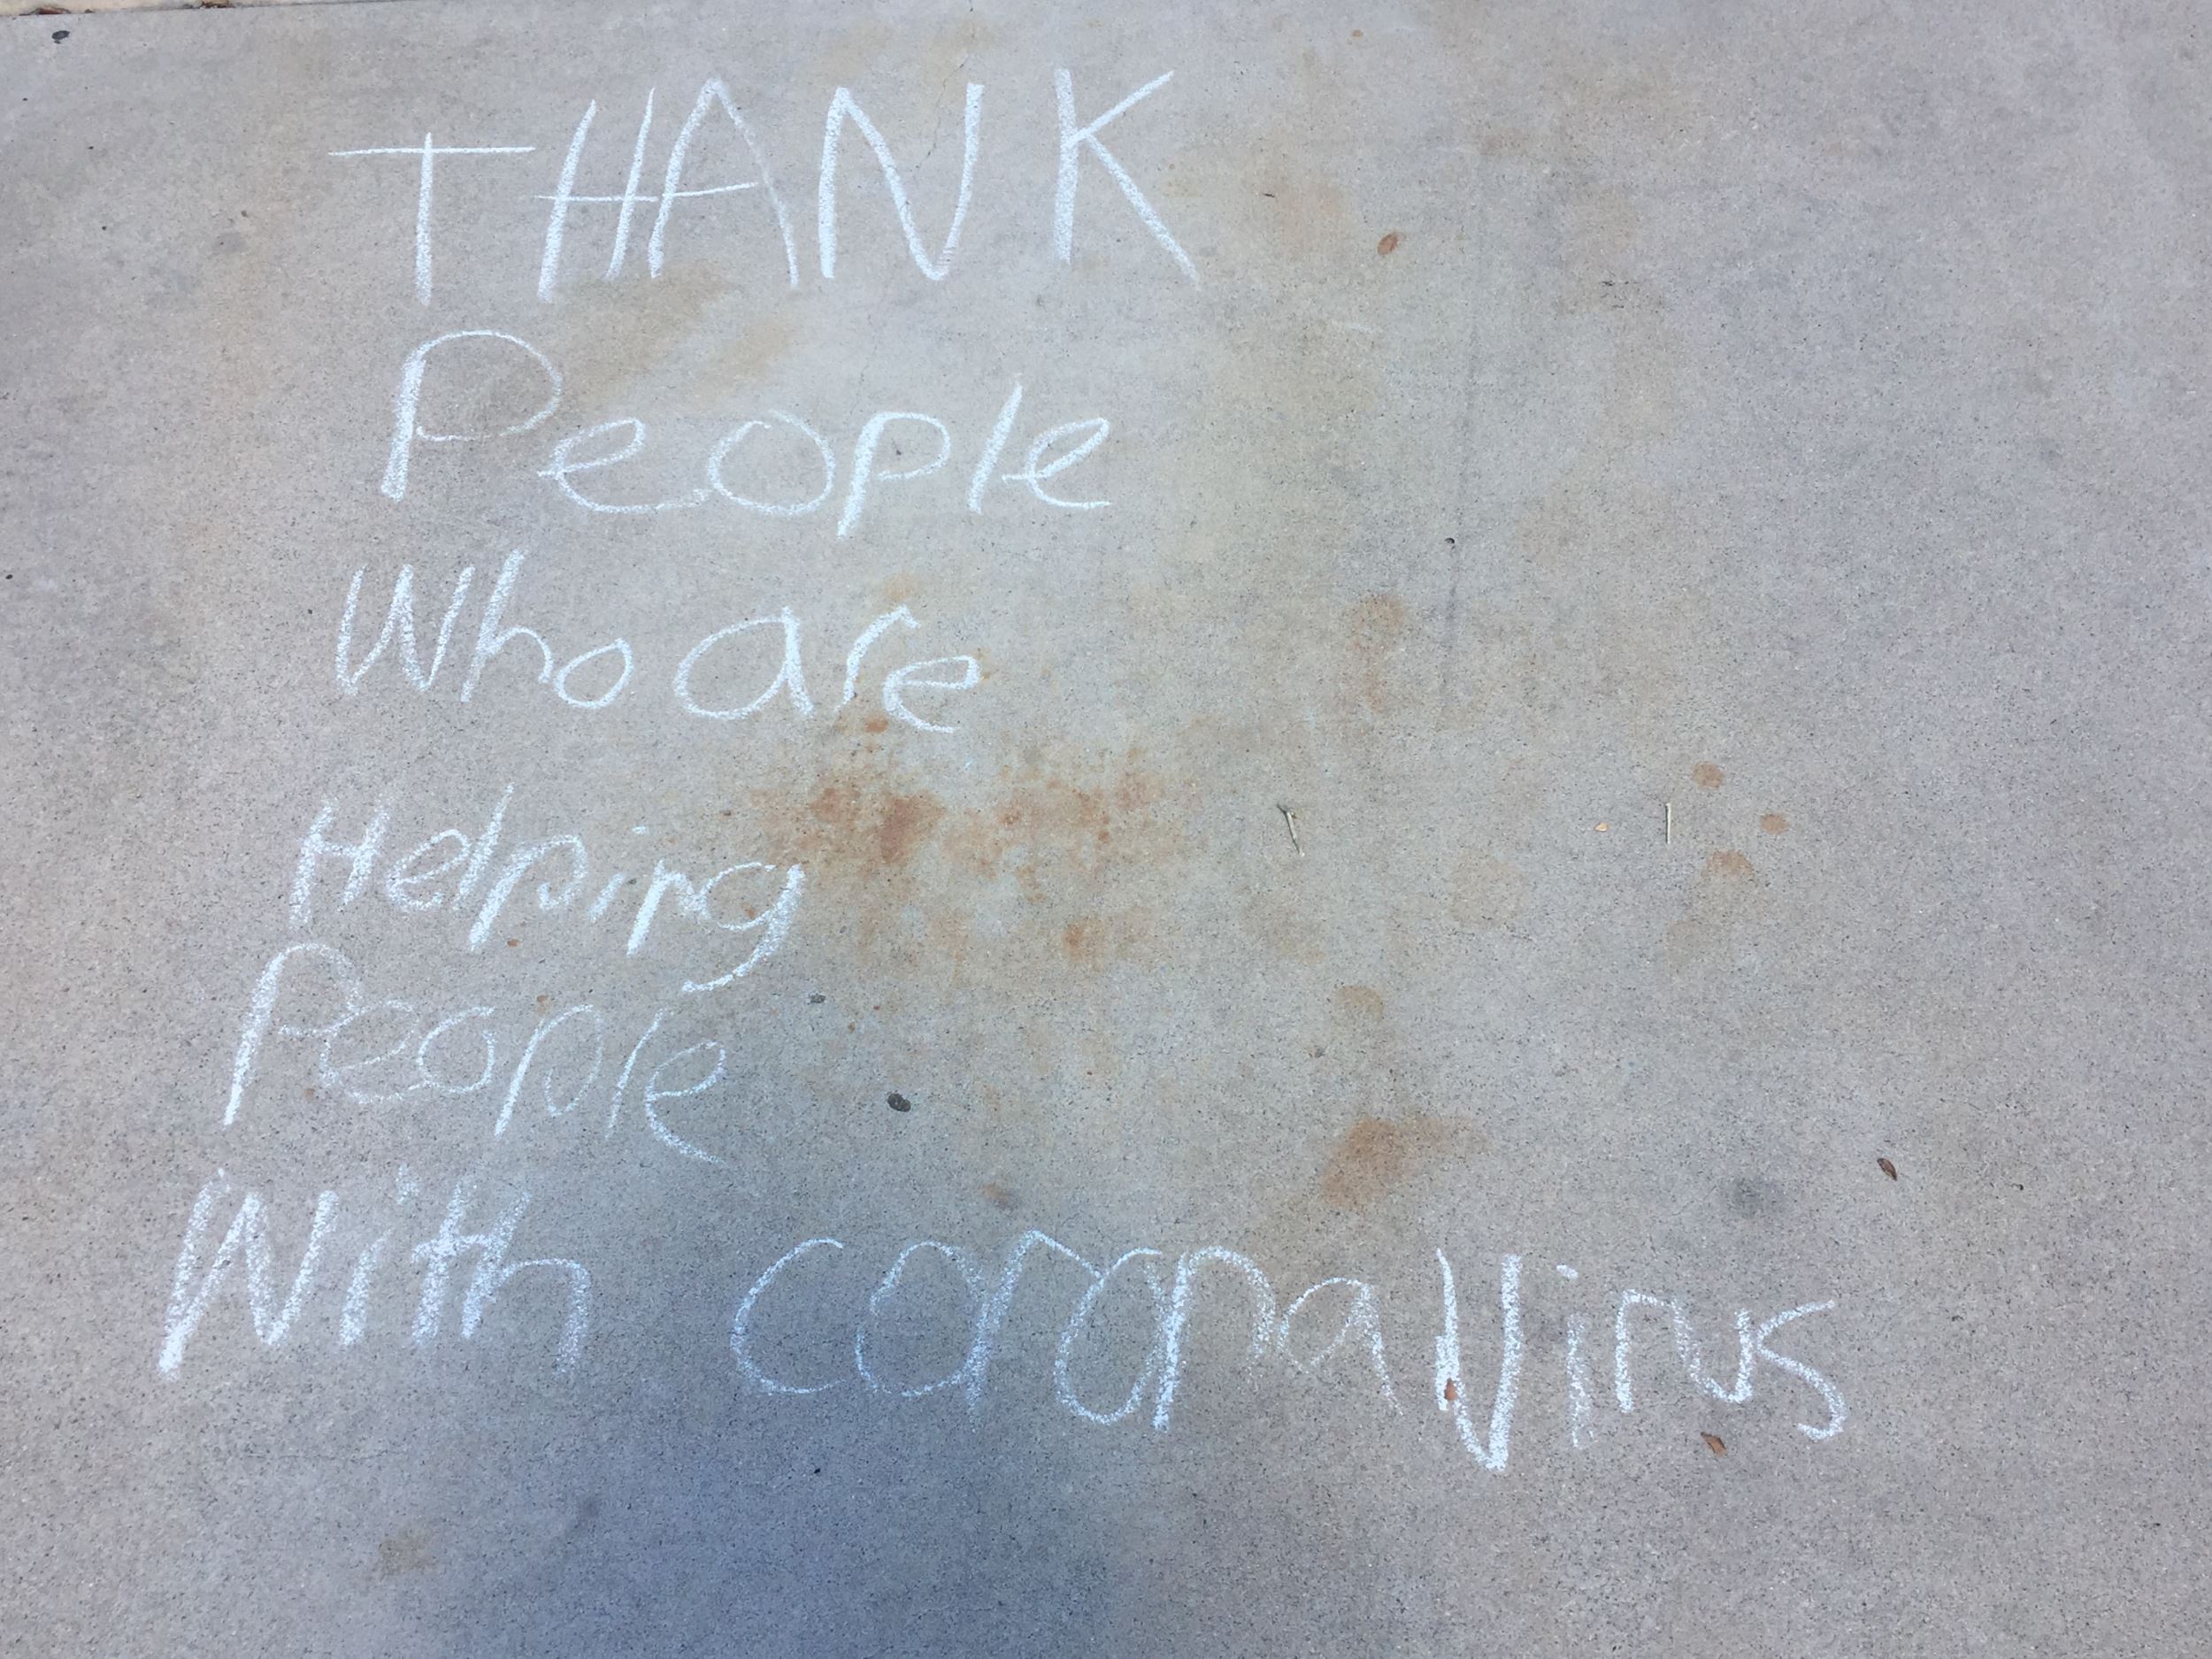 THANK
People
Who are
Helping
People
With coronaVirus